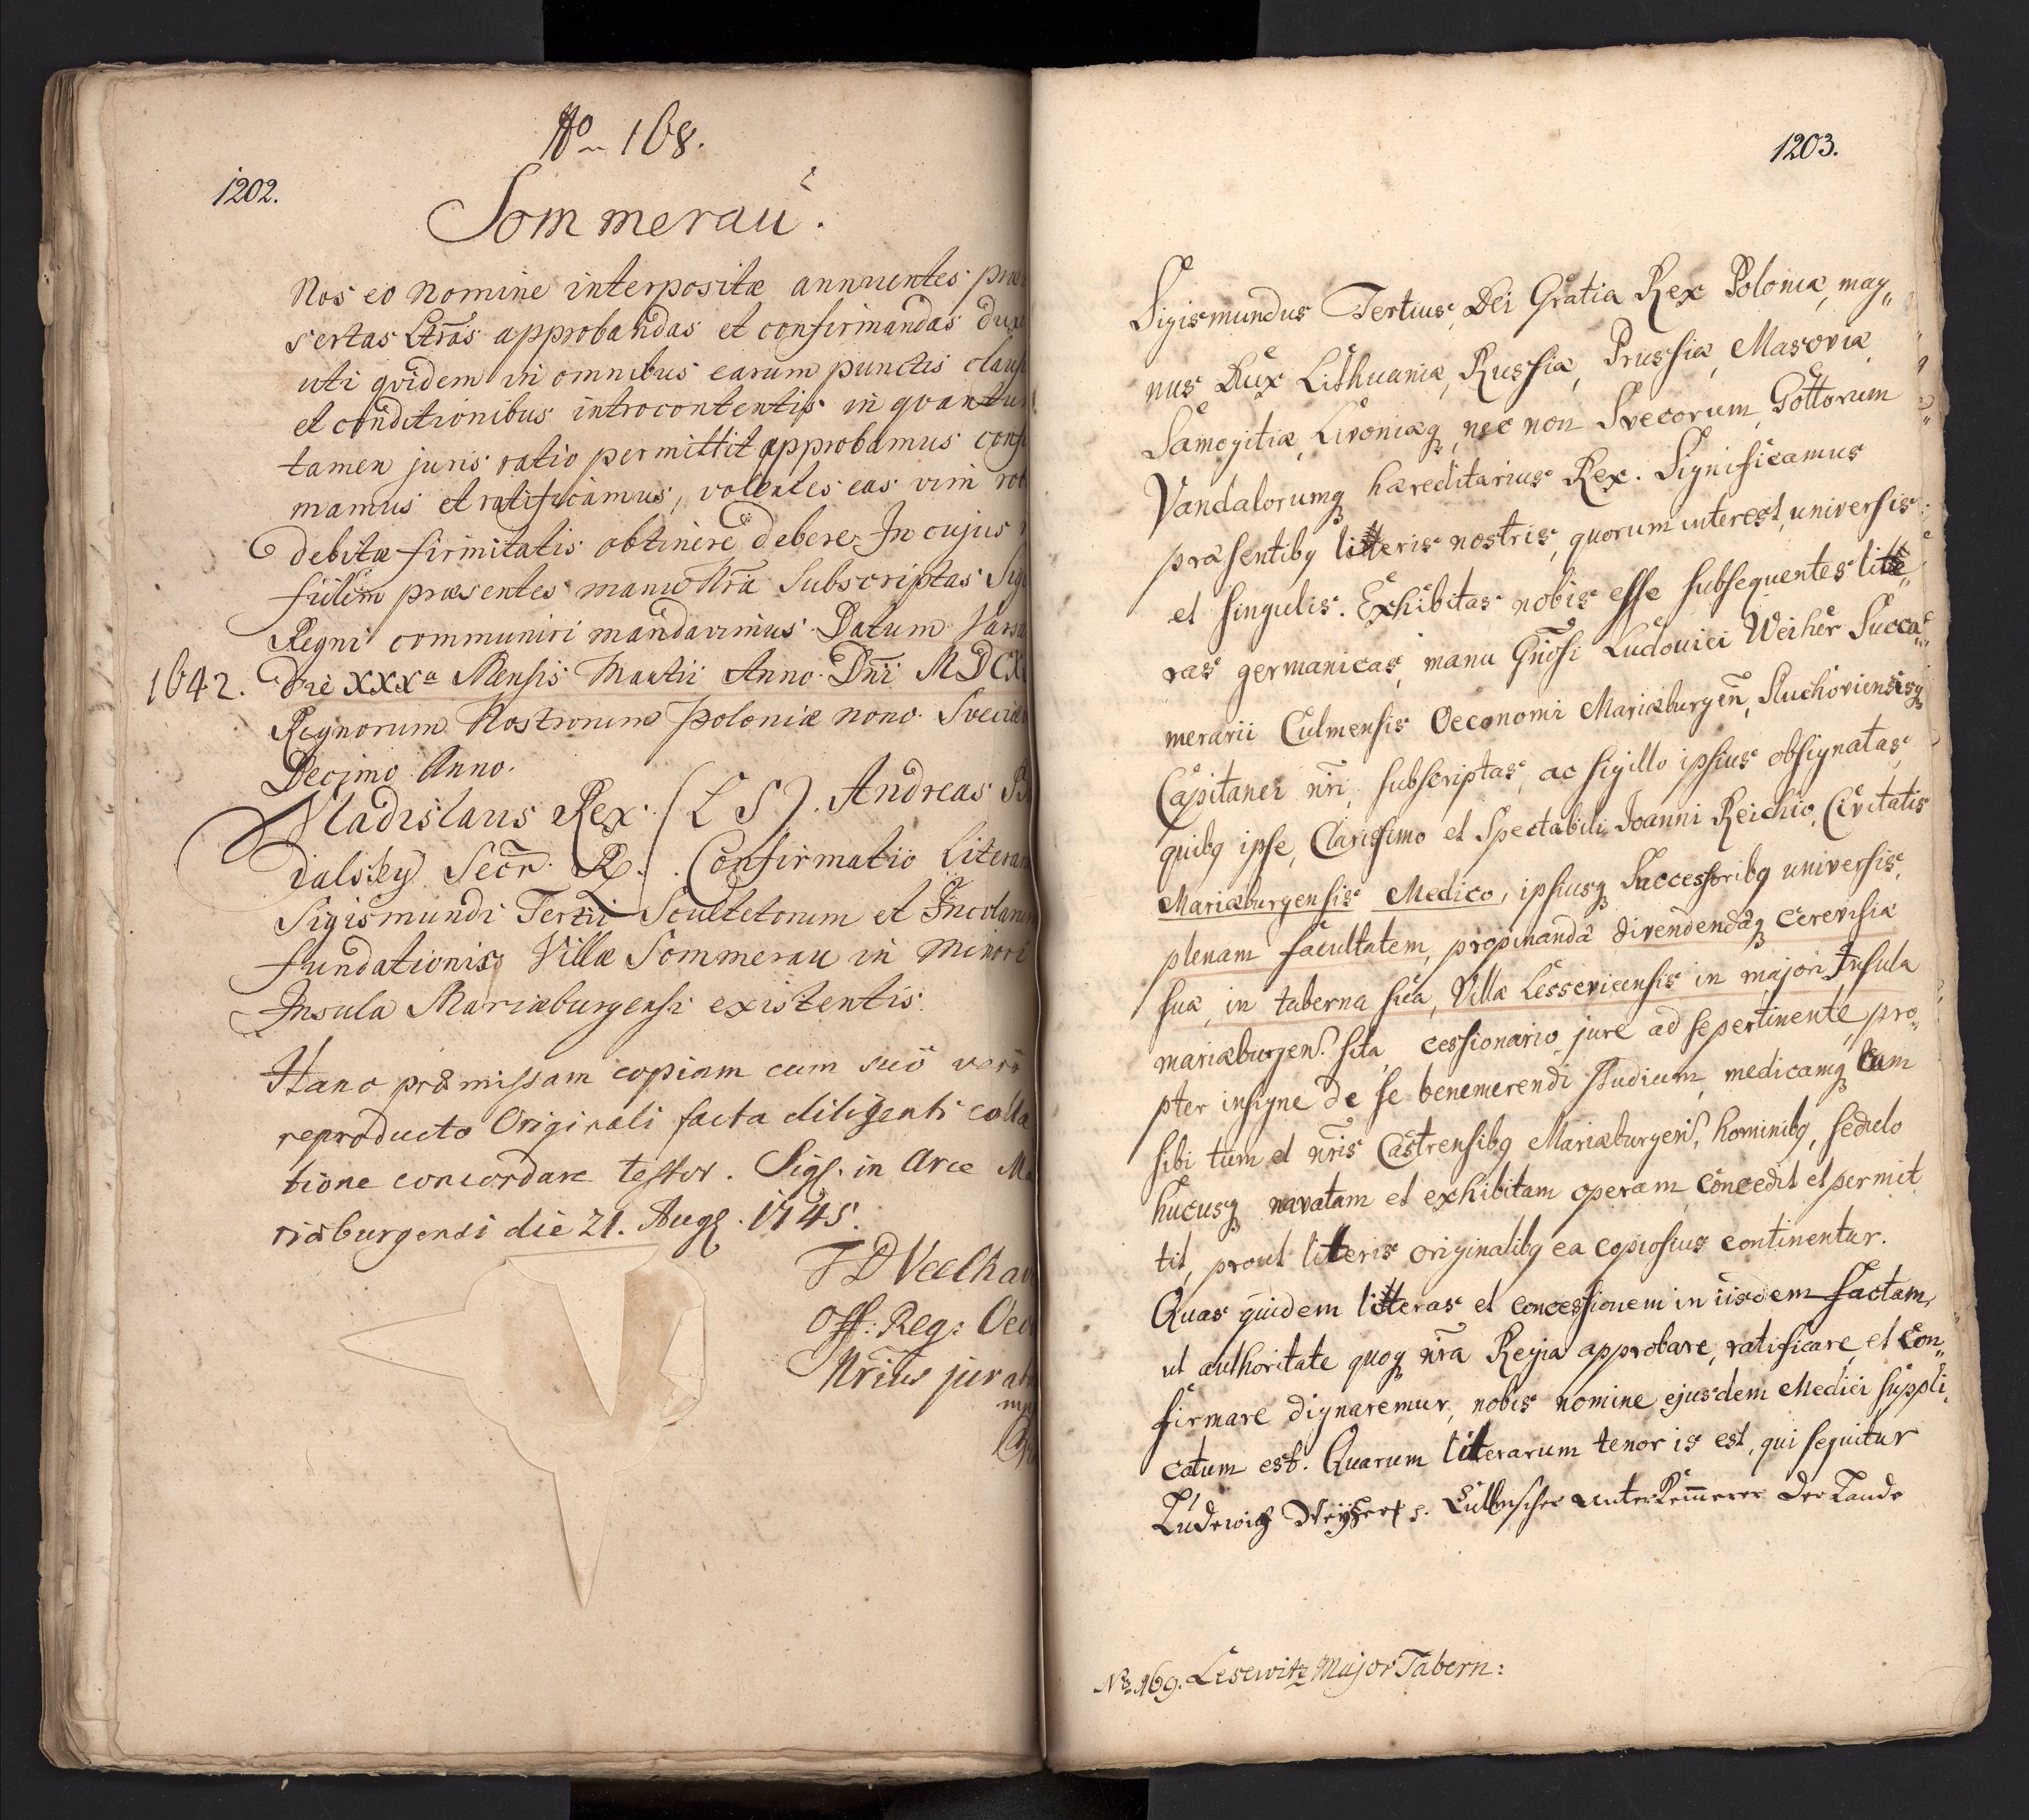 No 168.
1202.
Sommerau.
Nos eo nomine interpositæ annuentes præ
sertas Ltras approbandas et confirmandas dux
uti qvidem in omnibus earum punctis claus
et conditionibus introcontentis in qvantu
tamen juris ratio permittit approbamus conf
mamus et ratificamus, volentes eas vim rob
debitæ firmitatis obtinere debere. In cujus r
fidem præsentes manu Nra Subscriptas Sig
Regni communiri mandavimus. Datum Varsa
1642. Die XXXa Mensis Martii Anno Dni MDCX
Regnorum Nostrorum Poloniæ nono. Sveciæ
Decimo Anno.
Vladislaus Rex. (L S). Andreas
dalsky Secr. R. . Confirmatio Literar
Sigismundi Tertii Scultetorum et Incolarum
fundationis Villæ Sommerau in Minori
Insula Mariæburgensi existentis.
Hanc præmissam copiam cum suo vero
reproducto Originali facta diligenti colla
tione concordare testor. Sigs. in Arce Ma
riæburgensi die 21. Augs. 1745.
Off: Reg: Oeco
Nrius jurat
mp
1203.
Sigismundus Tertius, Dei Gratia Rex Poloniæ, mag„
nus Dux Lithuaniæ, Russiæ, Prussiæ, Masoviæ,
Samogitiæ, Livoniæq, nec non Svecorum, Gottorum
Vandalorumq hæreditarius Rex. Significamus
præsentibq litteris nostris, quorum interest, universis
et singulis. Exhibitas nobis esse subsequentes litte„
ras germanicas, manu Gnosi Ludovici Weiher Succa„
merarii Culmensis Oeconomi Mariæburgen, Sluchoviensisq
Capitanei nri, subscriptas, ac sigillo ipsius obsignatas,
quibq ipse, Clarissimo et Spectabili Joanni Reichio, Civitatis
Mariæburgensis Medico, ipsiusq Successoribq universis,
plenam facultatem, propinandæ divendendæq cerevisiæ
suæ, in taberna sua, Villæ Lessevicensis in majori Insula
mariæburgen. sita, cessionario jure ad se pertinente, pro„
pter insigne de se benemerendi studium, medicamq tum
sibi tum et nris Castrensibq Mariæburgen, hominibq, sedulo
hucusq navatam et exhibitam operam, concedit et permit
tit, prout literis originalibq ea copiosius continentur.
Quas quidem litteras et concessionem in iisdem factam,
ut authoritate quoq nra Regia approbare, ratificare, et con„
firmare dignaremur, nobis nomine ejusdem Medici suppli„
catum est. Quarum literarum tenor is est, qui sequitur
Ludwich Weyher p. Culmischer unter Kemmerer der Lande
No 169. Lesewitz Major Tabern: